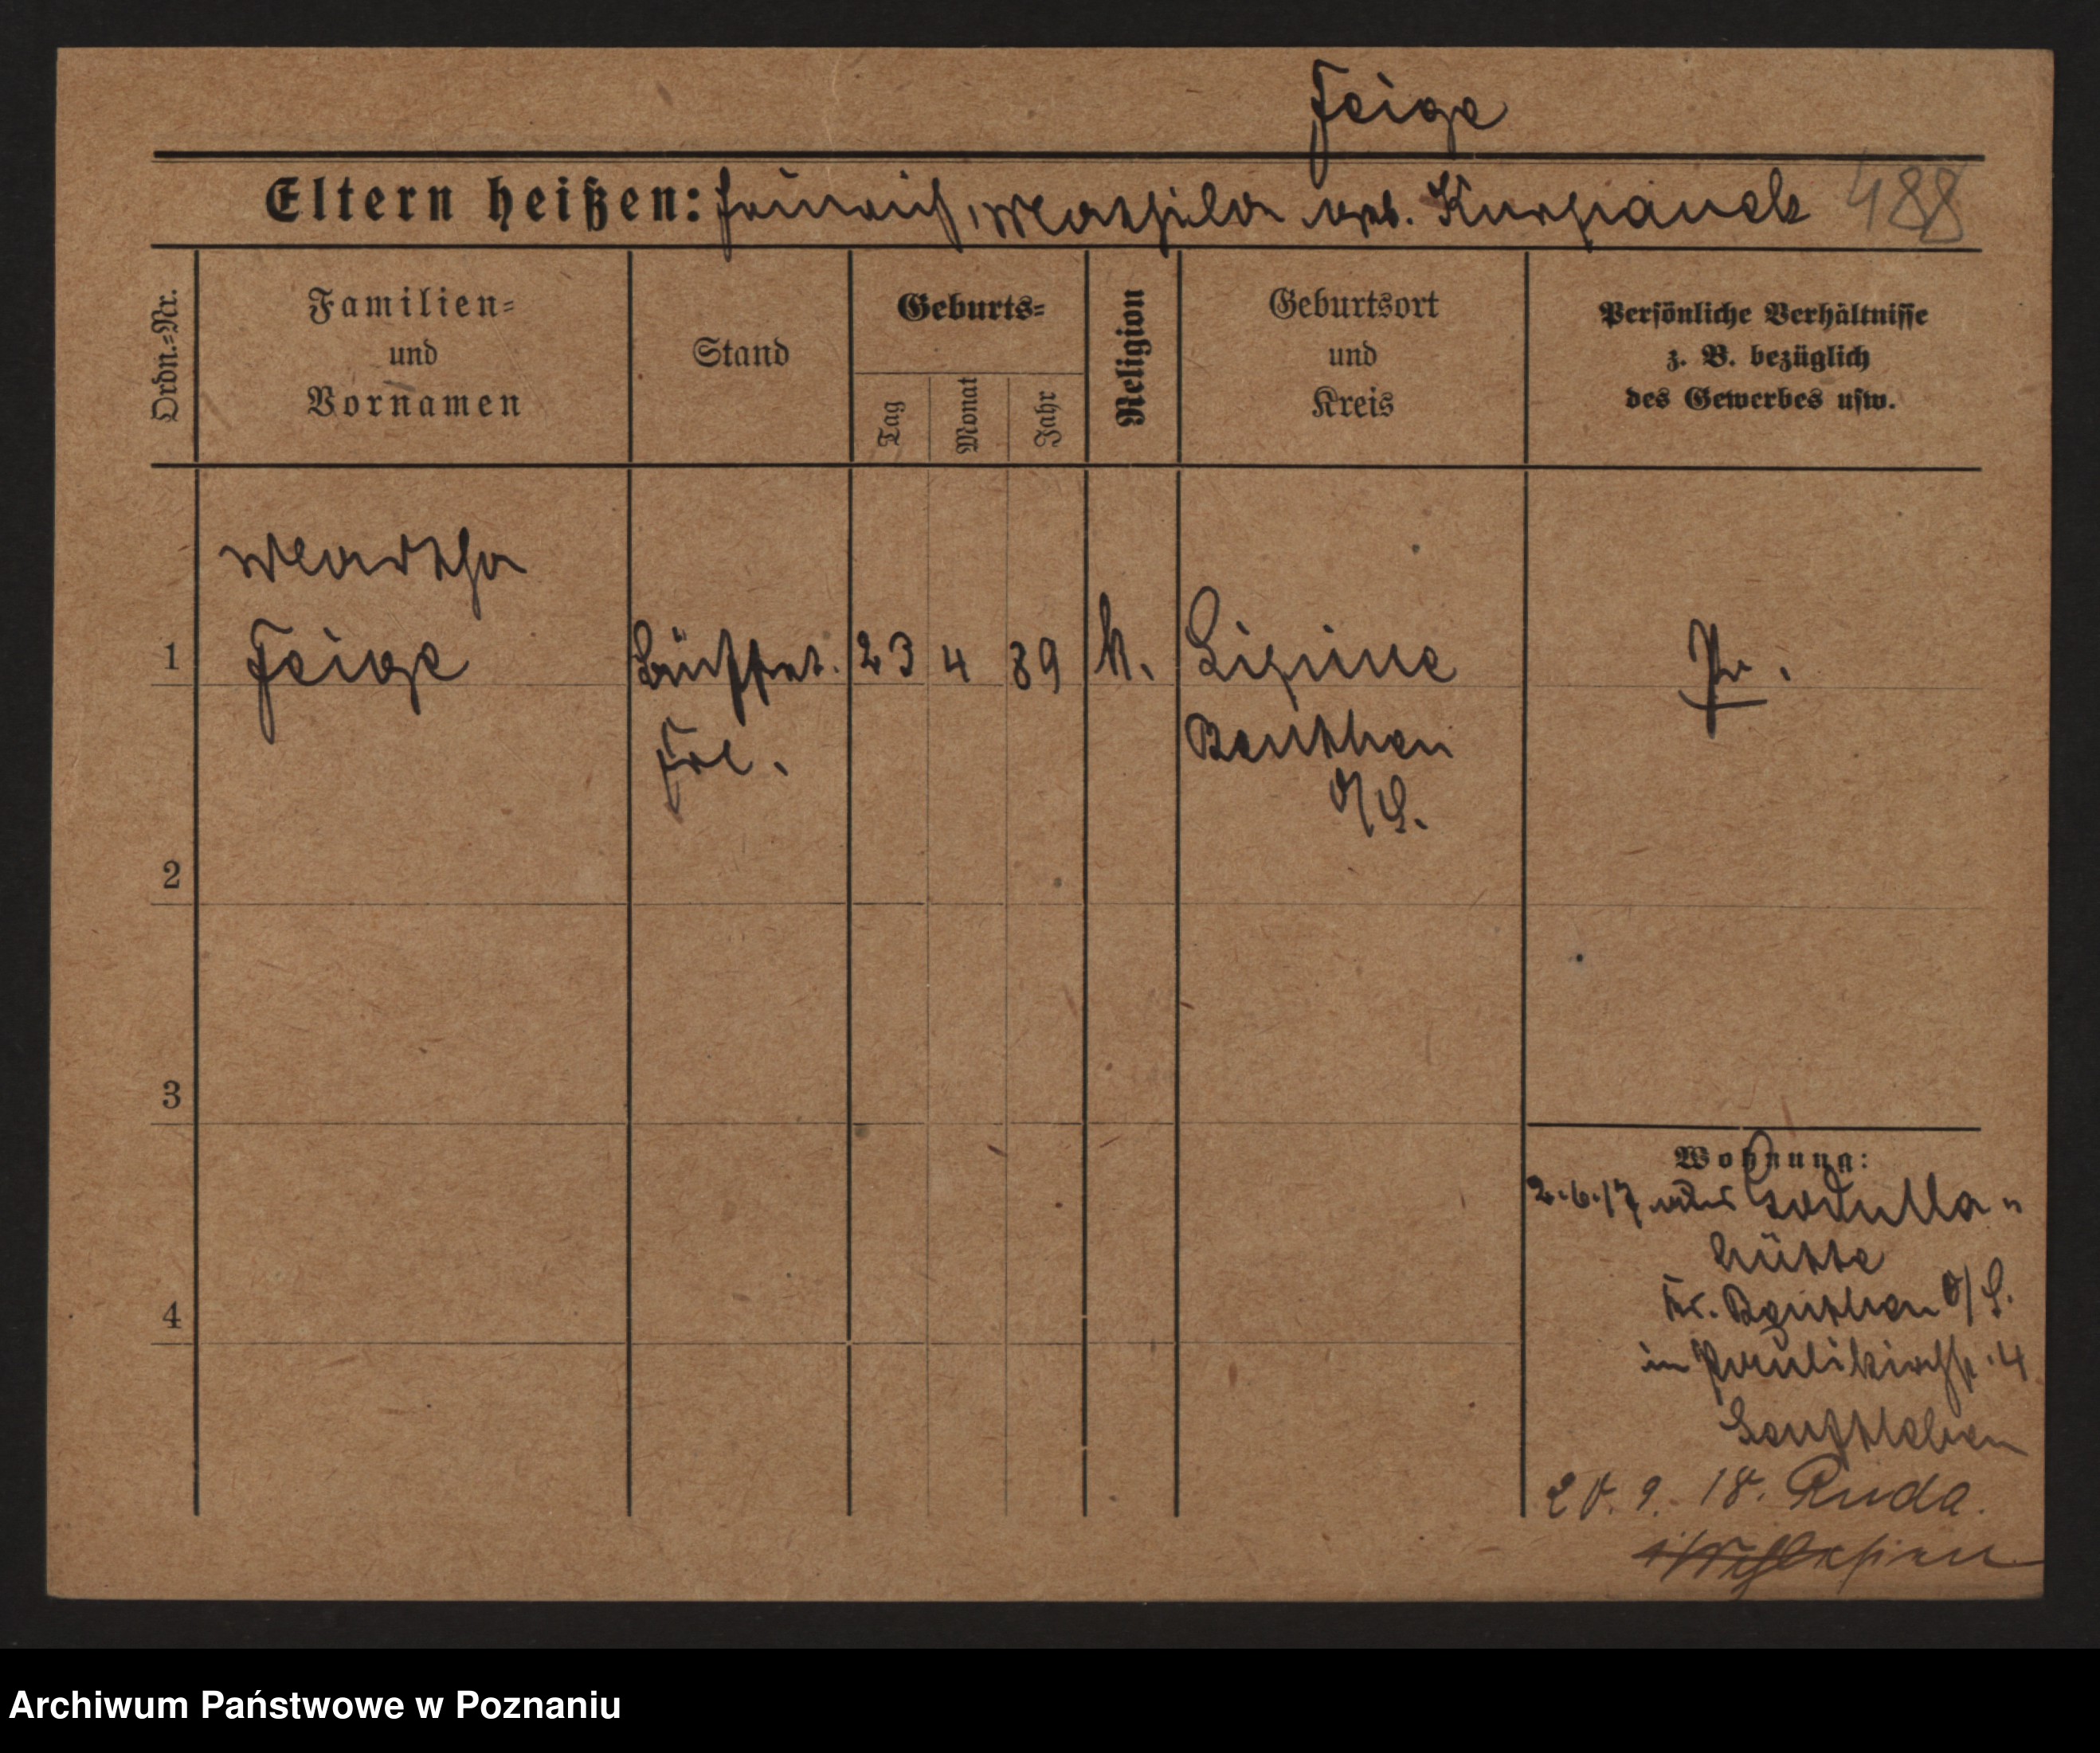 Feige
Eltern heißen: Heinrich, Mathilde geb. Kurpanek 488
Ordn.-Nr.
Familien-
und
Vornamen
Stand
Geburts-
Tag
Monat
Jahr
Religion
Geburtsort
und
Kreis
Persönliche Verhältnisse
z. B. bezüglich
des Gewerbes usw.
Martha
1 Feige Büffet. 23 4 89 k. Lipine Pr.
Frl. Beuthen
O/S.
2
3
4
Wohnung:
2.6.17 Godulla-
hütte
Kr. Beuthen O/S.
in Paulikirchstr. 4
20.9.18. Ruda
Archiwum Państwowe w Poznaniu